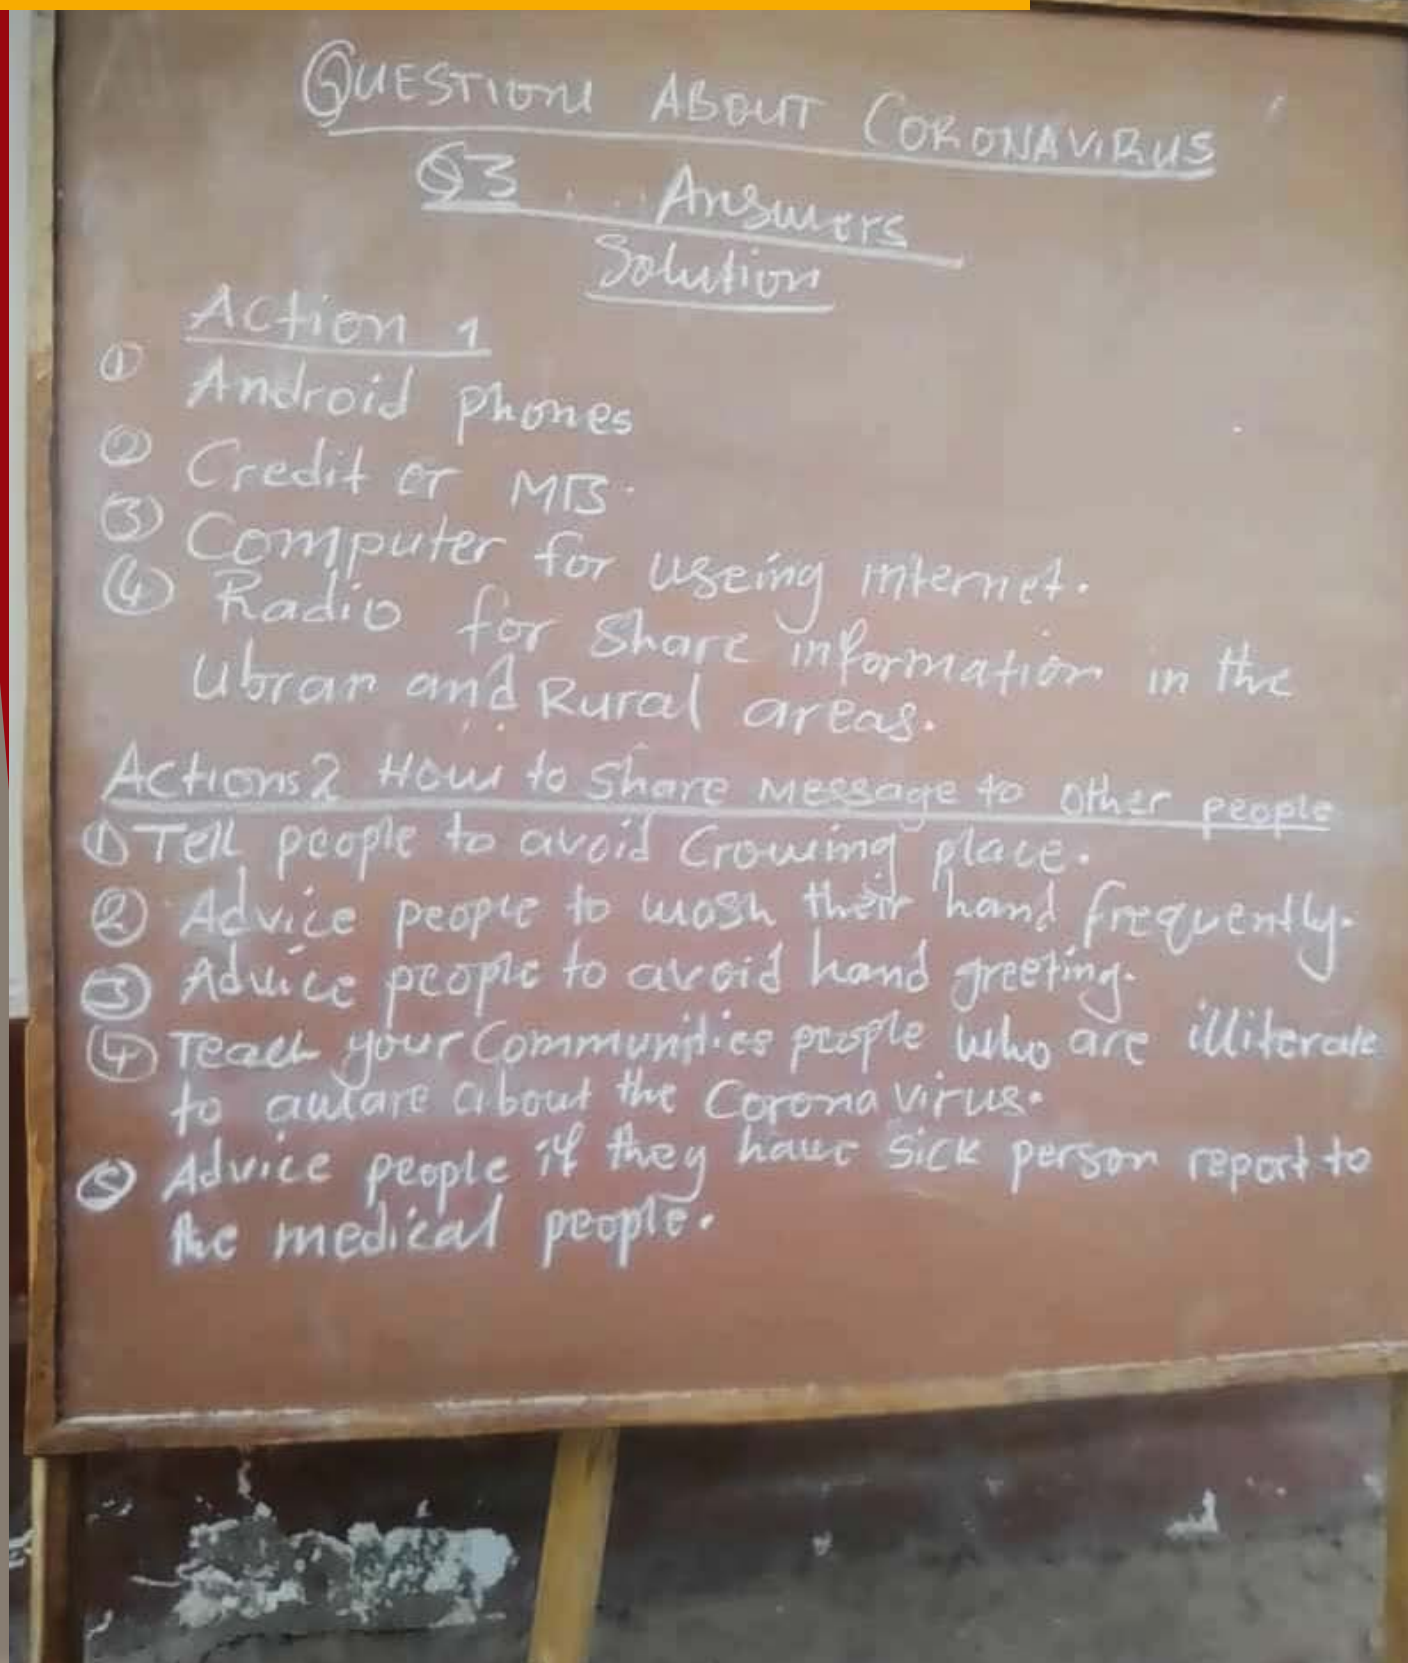 QUESTIONS ABOUT CORONAVIRUS
Q3 .... Answers
Solution
Action 1
① Android phones
② Credit or MB.
③ Computer for useing internet.
④ Radio for share information in the
Ubran and Rural areas.
Actions 2 How to share message to other people
① Tell people to avoid Crowing place.
② Advice people to wash their hand frequently.
③ Advice people to avoid hand greeting.
④ Teach your Communities people who are illiterate
to aware about the Corona virus.
⑤ Advice people if they have sick person report to
the medical people.